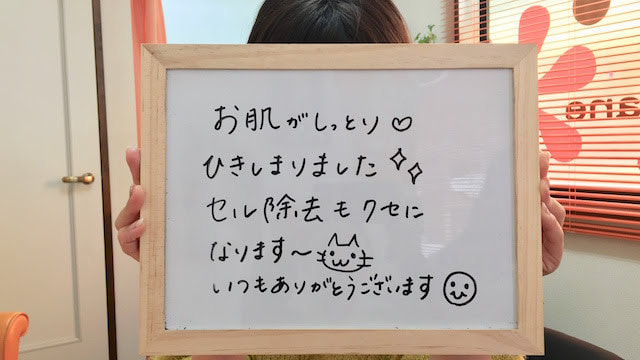 お肌がしっとり♡
ひきしまりました✧✧
セル除去もクセに
なります〜
いつもありがとうございます
ane